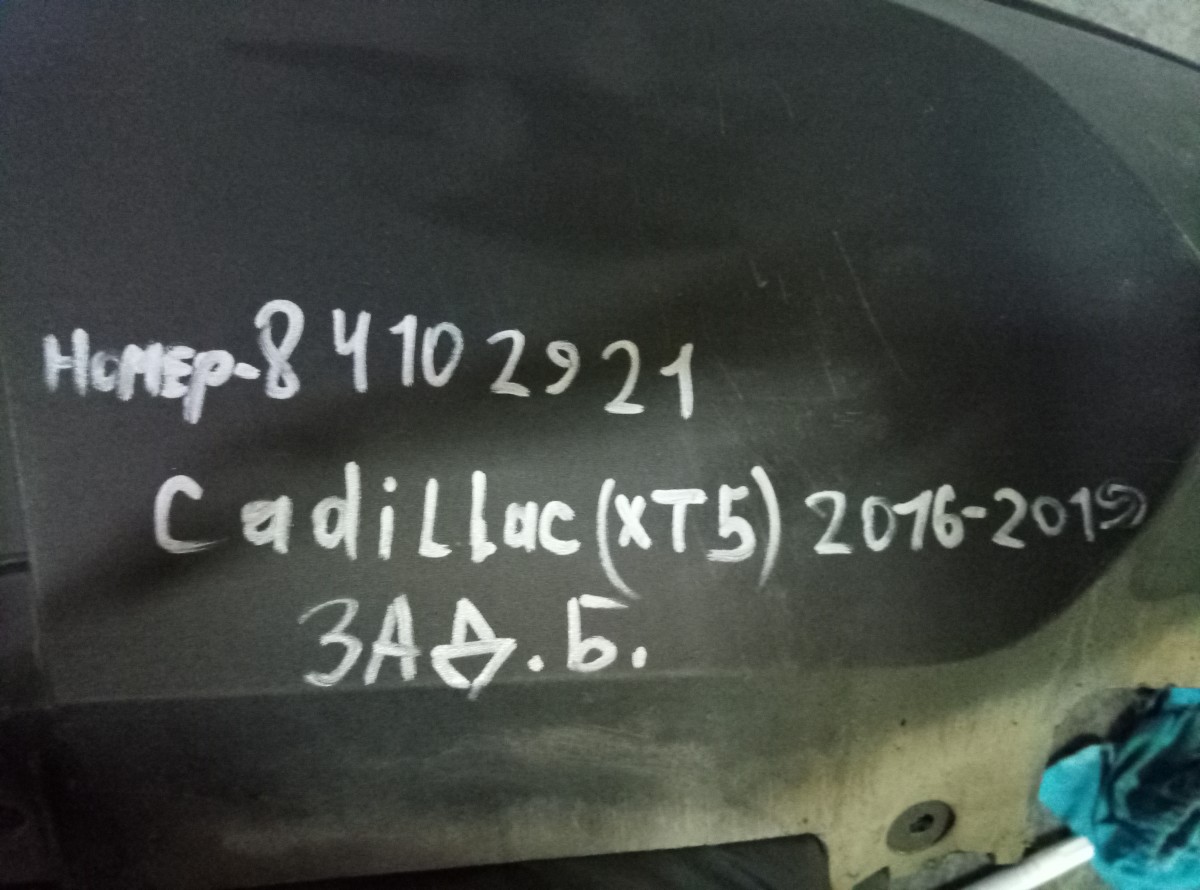 Номер-84102921
Cadillac (XT5) 2016-2019
ЗАД.Б.